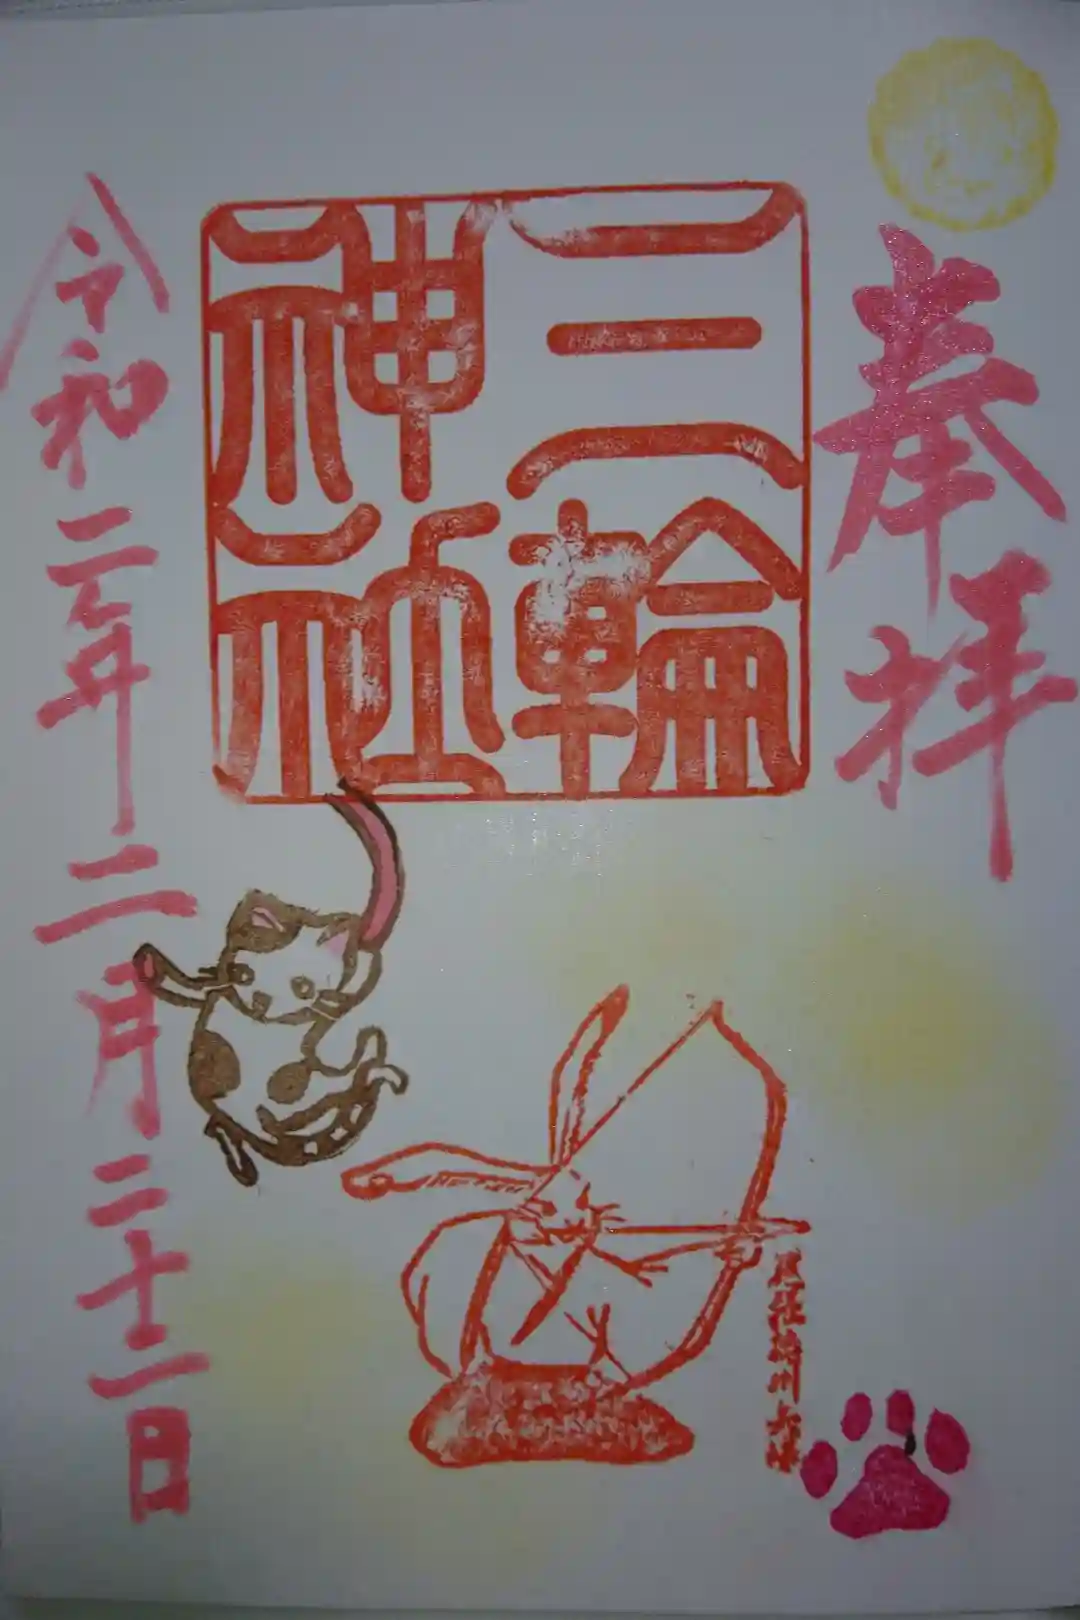 奉拝
三輪
神社
尾張徳川
令和二年二月二十二日